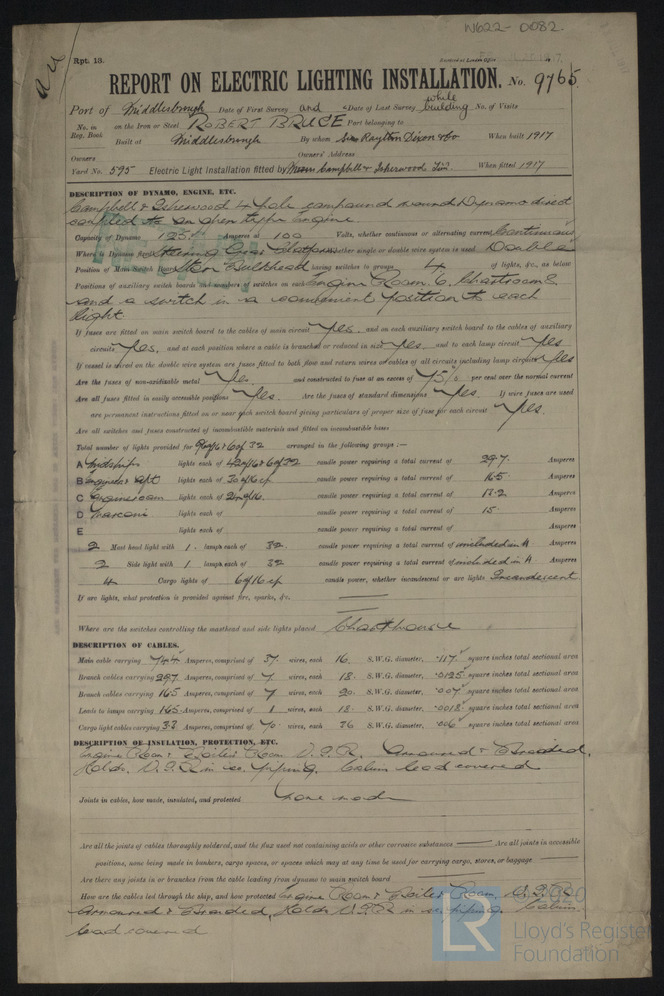 W622-0082
Rpt. 13.
REPORT ON ELECTRIC LIGHTING INSTALLATION. No. 9765
Port of Middlesbrough Date of First Survey and Date of Last Survey while building No. of Visits
No. in Reg. Book on the Iron or Steel ROBERT BRUCE Port belonging to
Built at Middlesbrough By whom Sir Raylton Dixon & Co When built 1917
Owners Owners' Address
Yard No. 595 Electric Light Installation fitted by Messrs Campbell & Isherwood Ltd. When fitted 1917
DESCRIPTION OF DYNAMO, ENGINE, ETC.
Campbell & Isherwood 4 pole compound wound Dynamo direct
coupled to an open type Engine
Capacity of Dynamo 125 Amperes at 100 Volts, whether continuous or alternating current Continuous
Where is Dynamo fixed Platform whether single or double wire system is used Double
Position of Main Switch Board Bulkhead having switches to groups 4 of lights, &c., as below
Positions of auxiliary switch boards and numbers of switches on each Engine Room 6, Chartroom 8
and a switch in a convenient position to each
light
If fuses are fitted on main switch board to the cables of main circuit Yes, and on each auxiliary switch board to the cables of auxiliary
circuits Yes, and at each position where a cable is branched or reduced in size Yes, and to each lamp circuit Yes
If vessel is wired on the double wire system are fuses fitted to both flow and return wires or cables of all circuits including lamp circuits Yes
Are the fuses of non-oxidizable metal Yes and constructed to fuse at an excess of 75% per cent over the normal current
Are all fuses fitted in easily accessible positions Yes. Are the fuses of standard dimensions Yes. If wire fuses are used
are permanent instructions fitted on or near each switch board giving particulars of proper size of fuse for each circuit Yes.
Are all switches and fuses constructed of incombustible materials and fitted on incombustible bases
Total number of lights provided for 6 of 32 arranged in the following groups :—
A Midships lights each of 6 of 32 candle power requiring a total current of 29.7 Amperes
B Engineers Apt lights each of 30 of 16 cp candle power requiring a total current of 16.5 Amperes
C Engineroom lights each of 16. candle power requiring a total current of 13.2 Amperes
D Marconi lights each of candle power requiring a total current of 15. Amperes
E lights each of candle power requiring a total current of Amperes
2 Mast head light with 1. lamps each of 32 candle power requiring a total current of included in A Amperes
2 Side light with 1 lamps each of 32 candle power requiring a total current of included in A Amperes
4 Cargo lights of 6 of 16 cp candle power, whether incandescent or arc lights Incandescent
If arc lights, what protection is provided against fire, sparks, &c.
Where are the switches controlling the masthead and side lights placed Charthouse
DESCRIPTION OF CABLES.
Main cable carrying 74.4 Amperes, comprised of 37. wires, each 16. S.W.G. diameter, .117 square inches total sectional area
Branch cables carrying 29.7 Amperes, comprised of 7 wires, each 18. S.W.G. diameter, .0125 square inches total sectional area
Branch cables carrying 16.5 Amperes, comprised of 7 wires, each 20. S.W.G. diameter, .007 square inches total sectional area
Leads to lamps carrying 1.65 Amperes, comprised of 1 wires, each 18. S.W.G. diameter, .0018 square inches total sectional area
Cargo light cables carrying 3.3 Amperes, comprised of 70. wires, each 36 S.W.G. diameter, .006 square inches total sectional area
DESCRIPTION OF INSULATION, PROTECTION, ETC.
Engine Room & Boiler Room V.I.R. Armoured & Braided.
Holds. V.I.R in piping. Cabin lead covered
Joints in cables, how made, insulated, and protected None made
Are all the joints of cables thoroughly soldered, and the flux used not containing acids or other corrosive substances — Are all joints in accessible
positions, none being made in bunkers, cargo spaces, or spaces which may at any time be used for carrying cargo, stores, or baggage —
Are there any joints in or branches from the cable leading from dynamo to main switch board
How are the cables led through the ship, and how protected Engine Room & Boiler Room. V.I.R.
Armoured & Braided, Holds V.I.R in piping. Cabin
lead covered
LR
2020
Lloyd's Register
Foundation